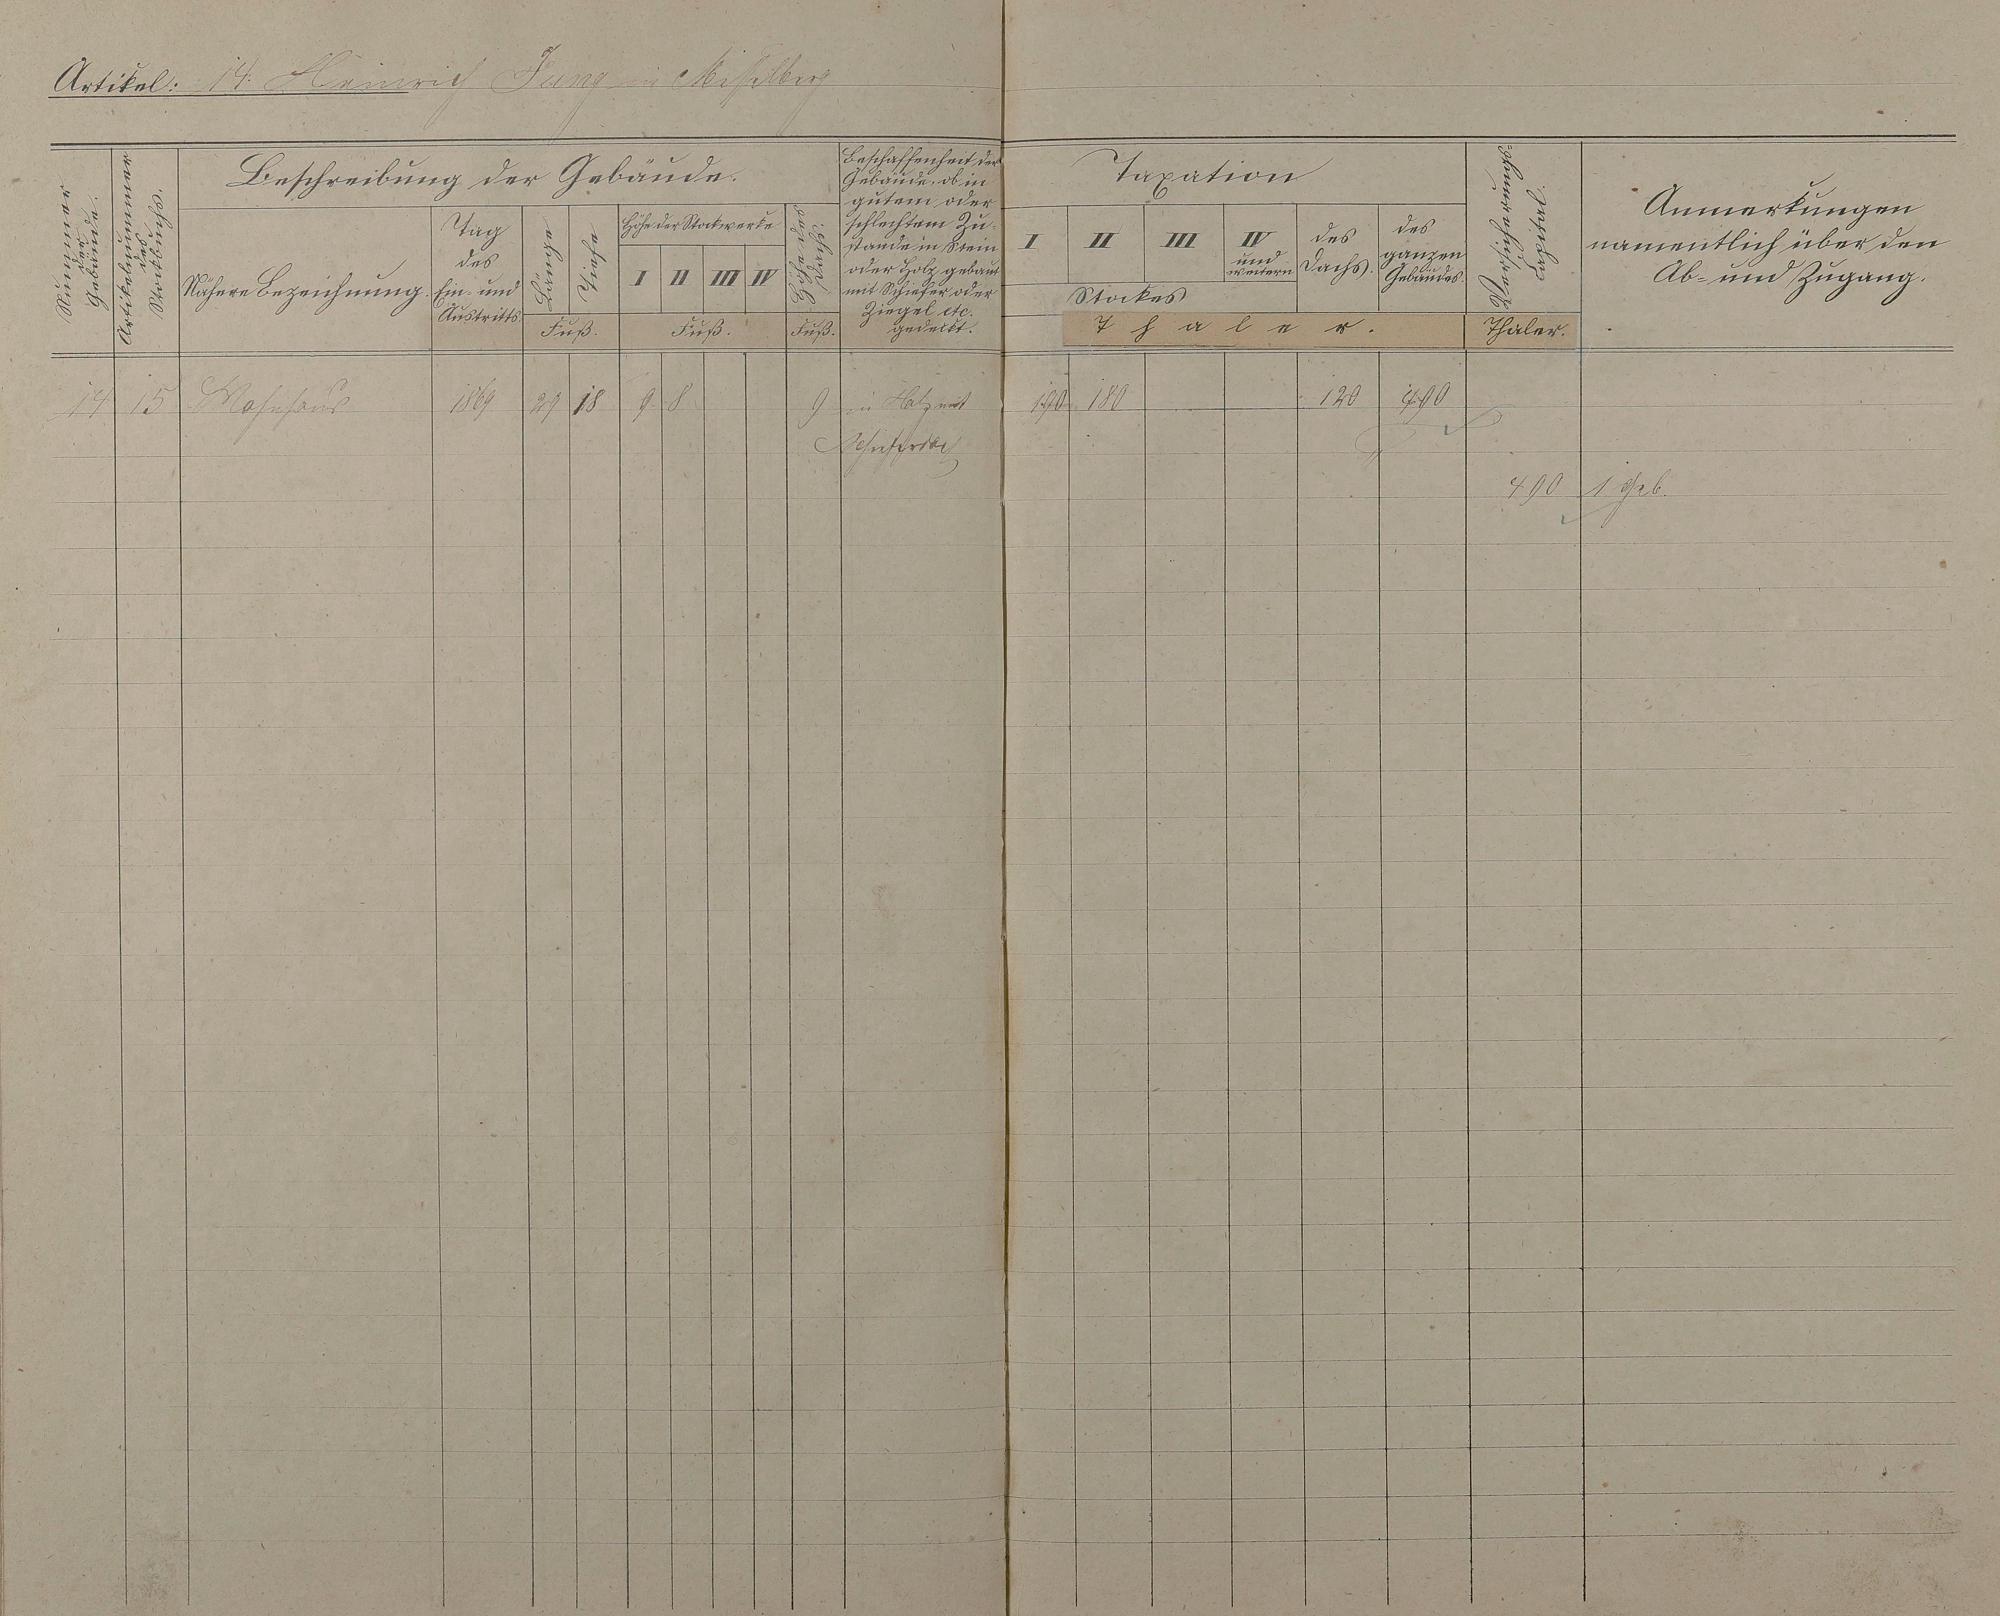 Artikel: 14. Heinrich Jung in Misselberg
Nummer der Gebäude.
Artikelnummer des Stockbuchs.
Beschreibung der Gebäude.
Nähere Bezeichnung.
Tag des Ein- und Austritts.
Länge
Tiefe
Fuß.
Höhe der Stockwerke
I II III IV
Fuß.
Höhe des Dachs.
Fuß.
Beschaffenheit der
Gebäude, ob in
gutem oder
schlechtem Zu-
stande in Stein
oder Holz gebaut
mit Schiefer oder
Ziegel etc.
gedeckt.
Taxation
I II III IV und weitern
Stockes
des Dachs.
des ganzen Gebäudes.
Thaler.
Versicherungs-Capital.
Thaler.
Anmerkungen
namentlich über den
Ab- und Zugang.
14 15 Wohnhaus 1869 29 18 9 8 9 in Holz mit 190 180 120 490
Schieferdach
490 1 Geb.